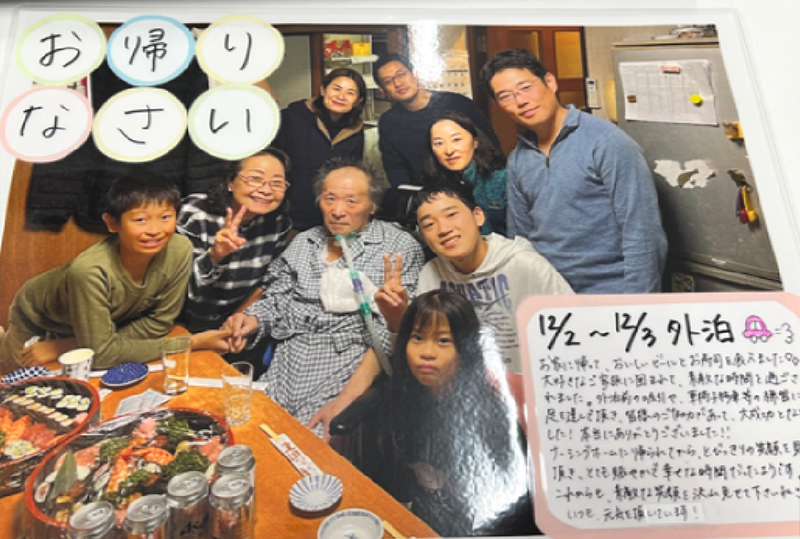 お帰り
なさい
12/2 ~ 12/3 外泊
お家に帰って、おいしいビールとお寿司を
大好きなご家族に囲まれて、素敵な時間を過ごさ
れました。外泊前の
足を運んで頂き、皆様のご協力があって、大成功となり
した！本当にありがとうございました!!
ナーシングホームに帰られてから、とびっきりの笑顔を見
頂き、とても賑やかで幸せな時間だったようです
これからも、素敵な笑顔を沢山見せて下さいね
いつも、元気を頂いています！